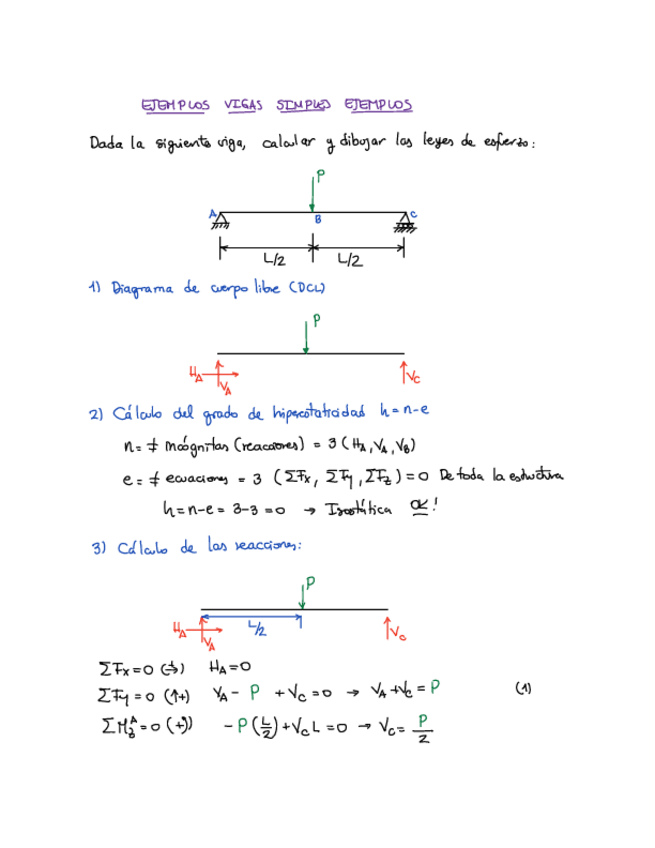 EJEMPLOS VIGAS SIMPLES EJEMPLOS
Dada la siguiente viga, calcular y dibujar las leyes de esfuerzo:
P
A B C
L/2 L/2
1) Diagrama de cuerpo libre (DCL)
P
H_A V_A V_C
2) Cálculo del grado de hiperestaticidad h=n-e
n= ≠ incógnitas (reacciones) = 3 (H_A, V_A, V_B)
e= ≠ ecuaciones = 3 (ΣFx, ΣFy, ΣFz)=0 De toda la estructura
h=n-e = 3-3=0 → Isostática OK!
3) Cálculo de las reacciones:
P
H_A V_A L/2 V_C
ΣFx=0 (→+) H_A=0
ΣFy=0 (↑+) V_A - P + V_C = 0 → V_A+V_C = P (1)
ΣM =0 (+↺) -P(L/2)+V_C L=0 → V_C = P/2